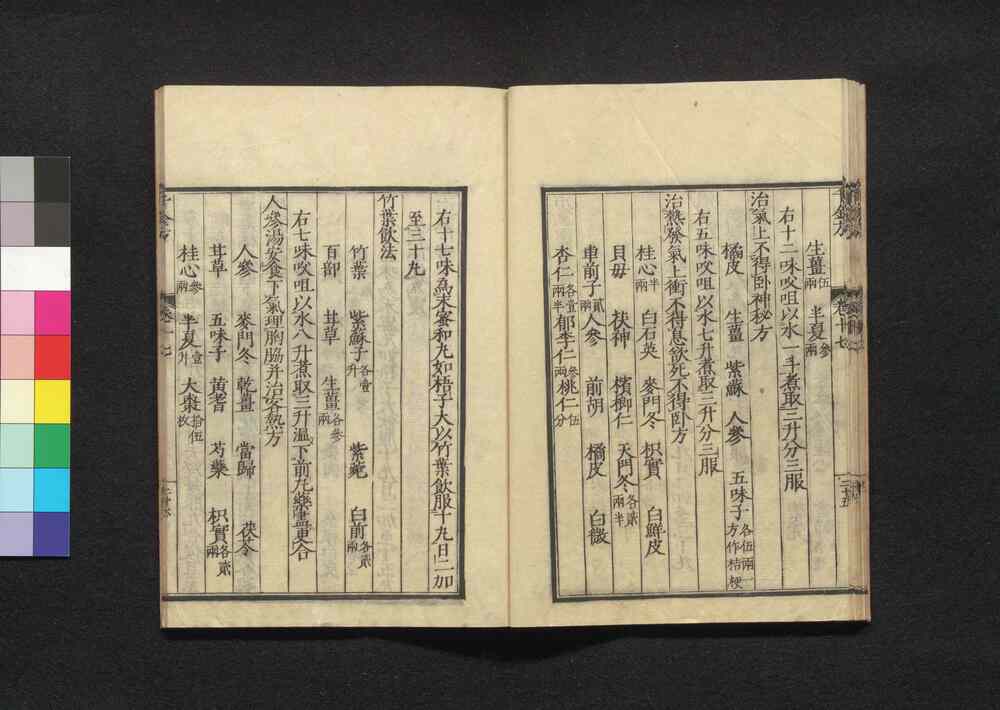 千金方 卷十七 三十五
生薑伍兩 半夏參兩
右十二味㕮咀以水一斗煮取三升分三服
治氣上不得卧神秘方
橘皮 生薑 紫蘇 人參 五味子各伍兩一方作桔梗
右五味㕮咀以水七升煮取三升分三服
治熱發氣上衝不得息欲死不得卧方
桂心半兩 白石英 麥門冬 枳實 白鮮皮
貝母 茯神 檳榔仁 天門冬各貳兩半
車前子貳兩 人參 前胡 橘皮 白薇
杏仁各壹兩半 郁李仁參兩 桃仁伍分
右十七味為末蜜和丸如梧子大以竹葉飲服十九日二加
至三十丸
竹葉飲法
竹葉 紫蘇子各壹升 紫菀 白前各貳兩
百部 甘草 生薑各參兩
右七味㕮咀以水八升煮取三升溫下前丸藥盡更合
人參湯安食下氣理胸脇并治客熱方
人參 麥門冬 乾薑 當歸 茯苓
甘草 五味子 黃耆 芍藥 枳實各貳兩
桂心參兩 半夏壹升 大棗拾伍枚